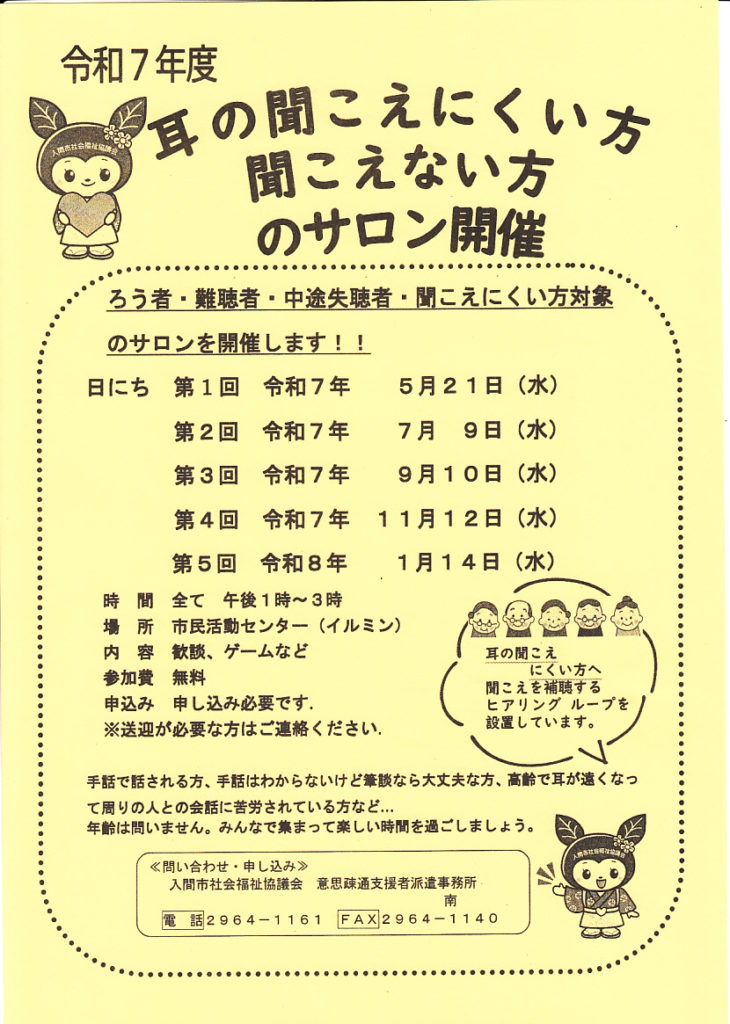 令和７年度
入間市社会福祉協議会
耳の聞こえにくい方
聞こえない方
のサロン開催
ろう者・難聴者・中途失聴者・聞こえにくい方対象
のサロンを開催します！！
日にち　第１回　令和７年　　５月２１日（水）
第２回　令和７年　　７月　９日（水）
第３回　令和７年　　９月１０日（水）
第４回　令和７年　１１月１２日（水）
第５回　令和８年　　１月１４日（水）
時　間　全て　午後１時～３時
場　所　市民活動センター（イルミン）
内　容　歓談、ゲームなど
参加費　無料
申込み　申し込み必要です.
※送迎が必要な方はご連絡ください.
耳の聞こえ
にくい方へ
聞こえを補聴する
ヒアリング ループを
設置しています。
手話で話される方、手話はわからないけど筆談なら大丈夫な方、高齢で耳が遠くなっ
て周りの人との会話に苦労されている方など…
年齢は問いません。みんなで集まって楽しい時間を過ごしましょう。
≪問い合わせ・申し込み≫
入間市社会福祉協議会　意思疎通支援者派遣事務所
南
電　話２９６４－１１６１　ＦＡＸ２９６４－１１４０
入間市社会福祉協議会